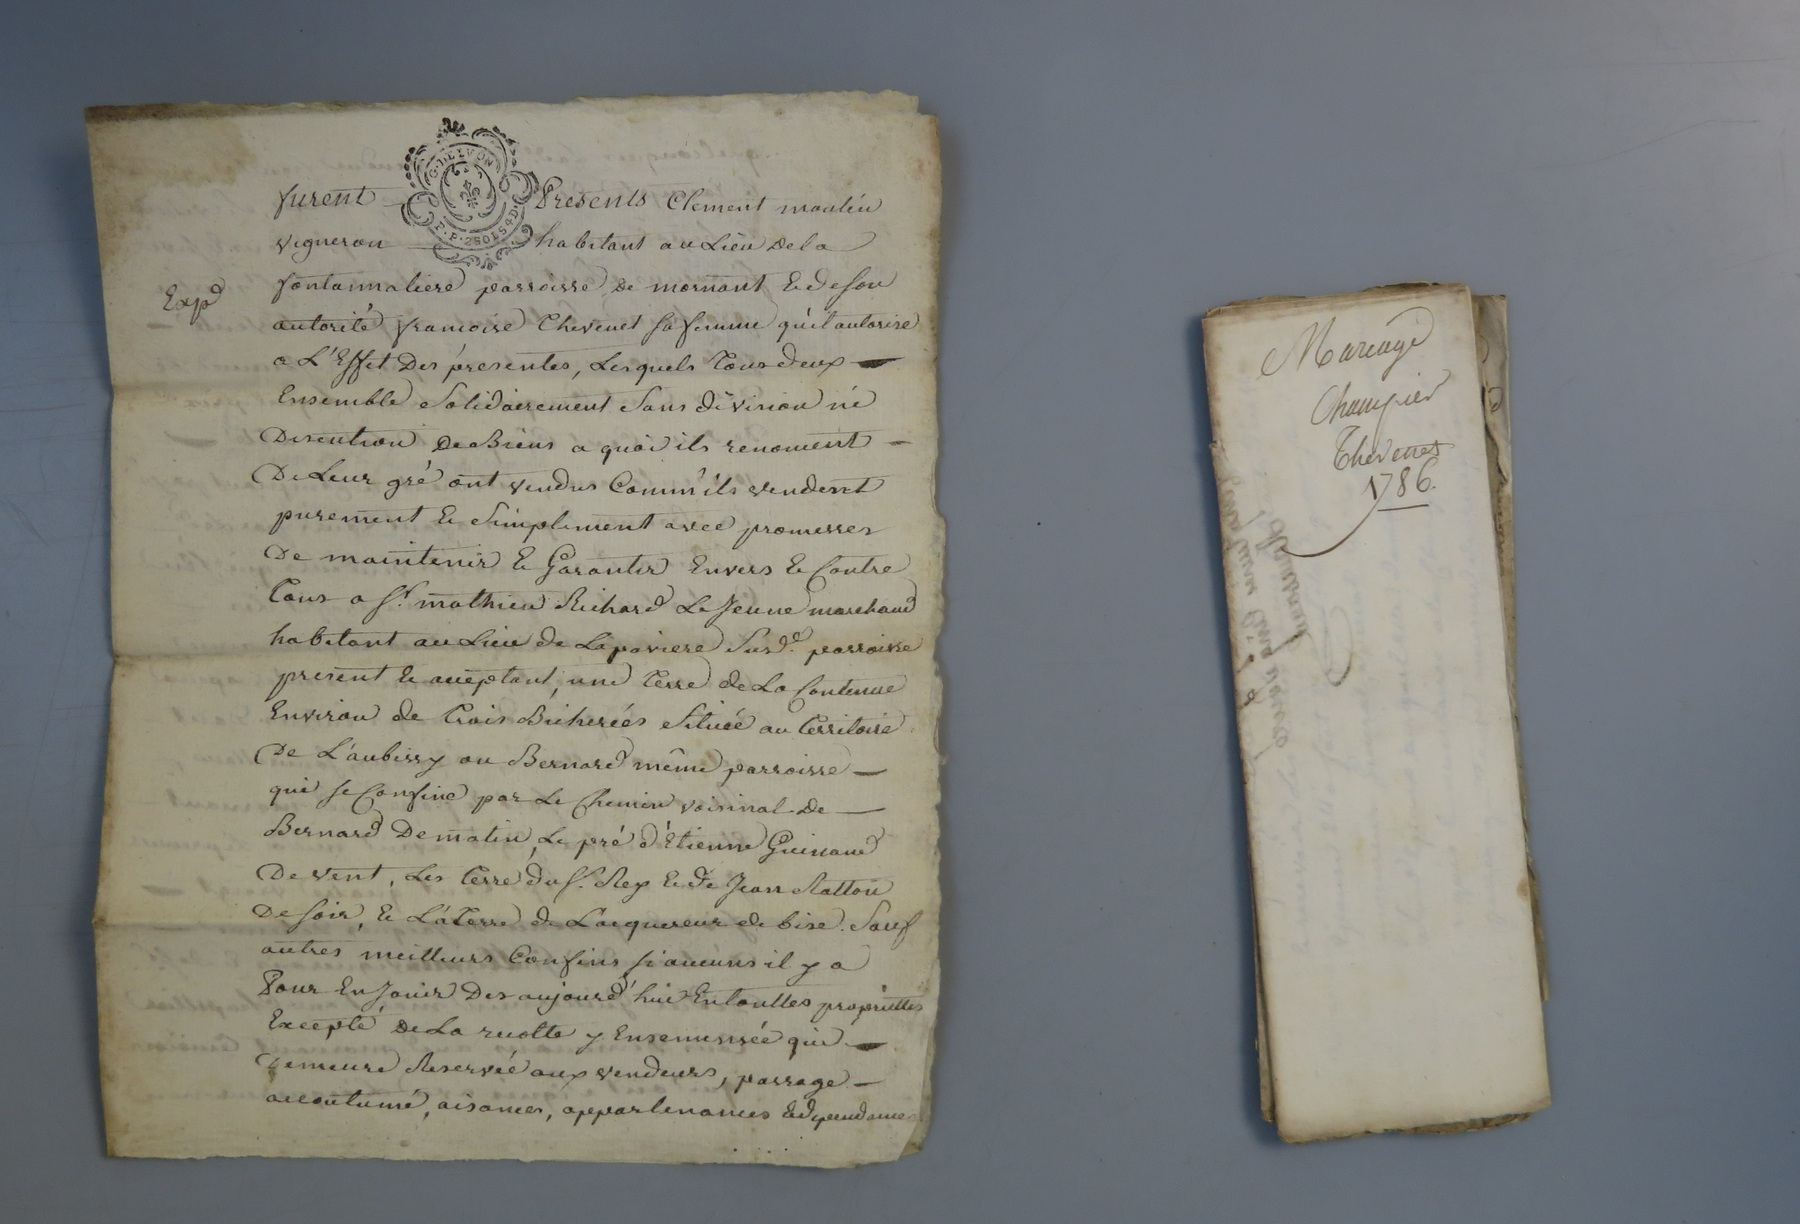 G. D. LYON
P. P. 2 SOLS 4 D
furent Presents Clement moulin
vigneron habitant au Lieu de la
fontannaliere parroisse de mornant & de son
autorité francoise Thevenet sa femme qu'il autorise
a L'Effet des présentes, Lesquels Tous deux
Ensemble Solidairement Sans division ni
Discution de Biens a quoi ils renoncent
De Leur gré ont vendus Comm'ils vendent
purement & simplement avec promesses
De maintenir & Garantir Envers & Contre
Tous a Sr. mathieu Richard Le Jeune marchand
habitant au Lieu de Lapaviere Susde. parroisse
present & acceptant, une Terre de La Contenue
Environ de Trois Bicherées Située au Territoire
De L'aubissy ou Bernard même parroisse
qui se Confine par Le Chemin voisinal de
Bernard De matin, Le pré d'Etienne Guinand
De vent, Les Terre du Sr. Rey & de Jean Ratton
De soir, & La Terre de L'acquereur de bise. Sauf
autres meilleurs Confins si aucuns il y a
Pour En Jouir Des aujourd'hui En touttes proprietés
Excepté De La recolte y Ensemensée qui
demeure Reservée aux vendeurs, passage
accoutumé, aisances, appartenances & dependances
Expd
Mariage
Champier
Thevenet
1786.